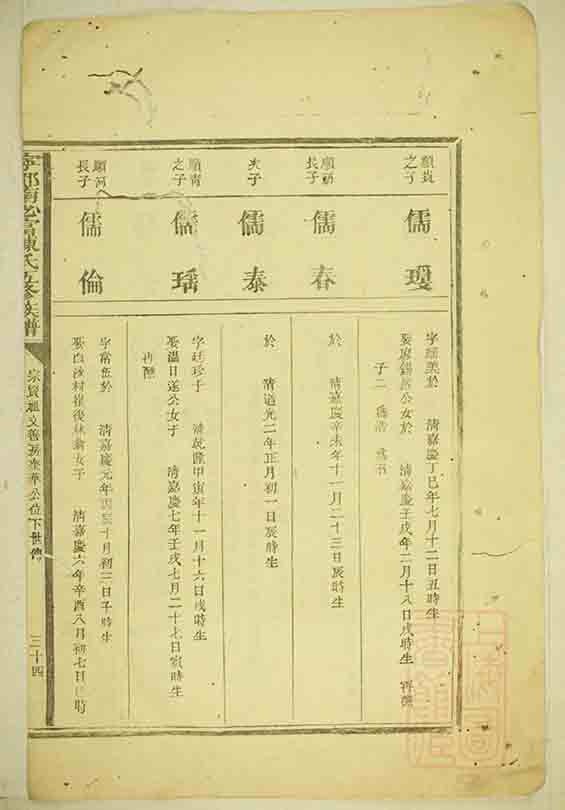 顯貴之子
儒瓊
字瑶美於 清嘉慶丁巳年七月十二日丑時生
娶 錫 公女於 清嘉慶壬戌年二月十八日戌時生 再醮
子二
顯 長子
儒春
於 清嘉慶辛未年十一月二十三日辰時生
次子
儒泰
於 清道光二年正月初一日辰時生
顯青之子
儒瑀
字廷珍于 清乾隆甲寅年十一月十六日戌時生
娶温日遂公女于 清嘉慶七年壬戌七月二十七日寅時生
再醮
顯 長子
儒倫
字常 於 清嘉慶元年丙辰十月初三日子時生
娶白沙村 後林翁女子 清嘉慶六年辛酉八月初七日 時
陳氏五修族譜
宗賢祖文 華公位下世傳
三十四